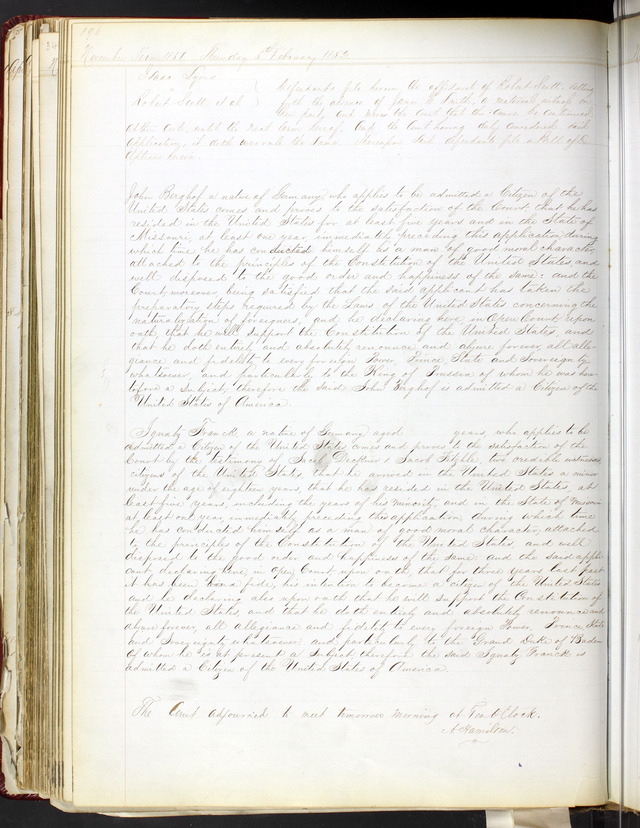 196
November Term 1851 Monday 5th February 1852
Robert Scott et al Defendants file herein the affidavit of Robert Scott, setting
forth the absence of James Smith, a material witness on
their part, and moves the Court that this cause be continued
at their costs, until the next term hereof. And the Court having duly considered said
application, it doth overrule the same. Whereupon said defendants file a Bill of
John Berghof a native of Germany, who applies to be admitted a Citizen of the
United States comes and proves to the satisfaction of the Court, that he has
resided in the United States for at least five years and in the State of
Missouri, at least one year immediately preceding this application, during
which time he has conducted himself as a man of good moral character,
attached to the principles of the Constitution of the United States, and
well disposed to the good order and happiness of the same: and the
Court, moreover being satisfied that the said applicant has taken the
preparatory steps required by the Laws of the United States concerning the
naturalization of foreigners, and he declaring here in Open Court, upon
oath, that he will support the Constitution of the United States, and
that he doth entirely and absolutely renounce and abjure forever, all alle-
giance and fidelity to every foreign Power, Prince State and Sovereignty
whatsoever, and particularly to the King of Prussia of whom he was here-
tofore a Subject, therefore the said John Berghof is admitted a Citizen of the
United States of America.
Ignatz Franck, a native of Germany aged years, who applies to be
admitted a Citizen of the United States comes and proves to the satisfaction of the
Court by the testimony of Jacob & Jacob two credible witnesses
citizens of the United States, that he arrived in the United States a minor
under the age of eighteen years, that he has resided in the United States, at
least five years, including the years of his minority, and in the State of Missouri
at least one year, immediately preceding this application, during which time
he has conducted himself as a man of good moral character, attached
to the principles of the Constitution of the United States, and well
disposed to the good order and happiness of the same, and the said appli-
cant declaring here, in open Court, upon oath, that for three years last past
it has been bona fide, his intention to become a citizen of the United States
and he declaring also upon oath that he will support the Constitution of
the United States and that he doth entirely and absolutely renounce and
abjure forever, all allegiance and fidelity to every foreign Power, Prince State
and Sovereignty whatsoever and particularly to the Grand Duke of Baden
of whom he is at present a Subject therefore the said Ignatz Franck is
admitted a Citizen of the United States of America.
The Court adjourned to meet tomorrow morning at Ten O'Clock.
A Hamilton.